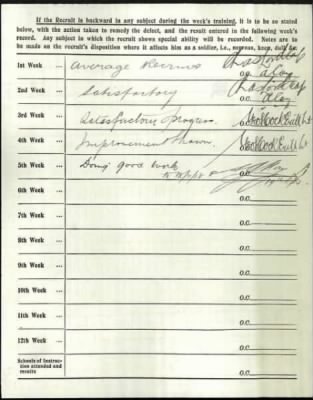 If the Recruit is backward in any subject during the week's training, it is to be so stated
below, with the action taken to remedy the defect, and the result entered in the following week's
record. Any subject in which the recruit shows special ability will be recorded. Notes are to
be made on the recruit's disposition where it affects him as a soldier, i.e., nervous, keen, dull, &c.
1st Week ... Average Recruit
O.C. D Coy
2nd Week ... Satisfactory
O.C. D Coy
3rd Week ... Satisfactory progress.
4th Week ... Improvement shown.
5th Week ... Doing good work
to
O.C.
6th Week ...
O.C.
7th Week ...
O.C.
8th Week ...
O.C.
9th Week ...
O.C.
10th Week ...
O.C.
11th Week ...
O.C.
12th Week ...
O.C.
Schools of Instruc-
tion attended and
results ...